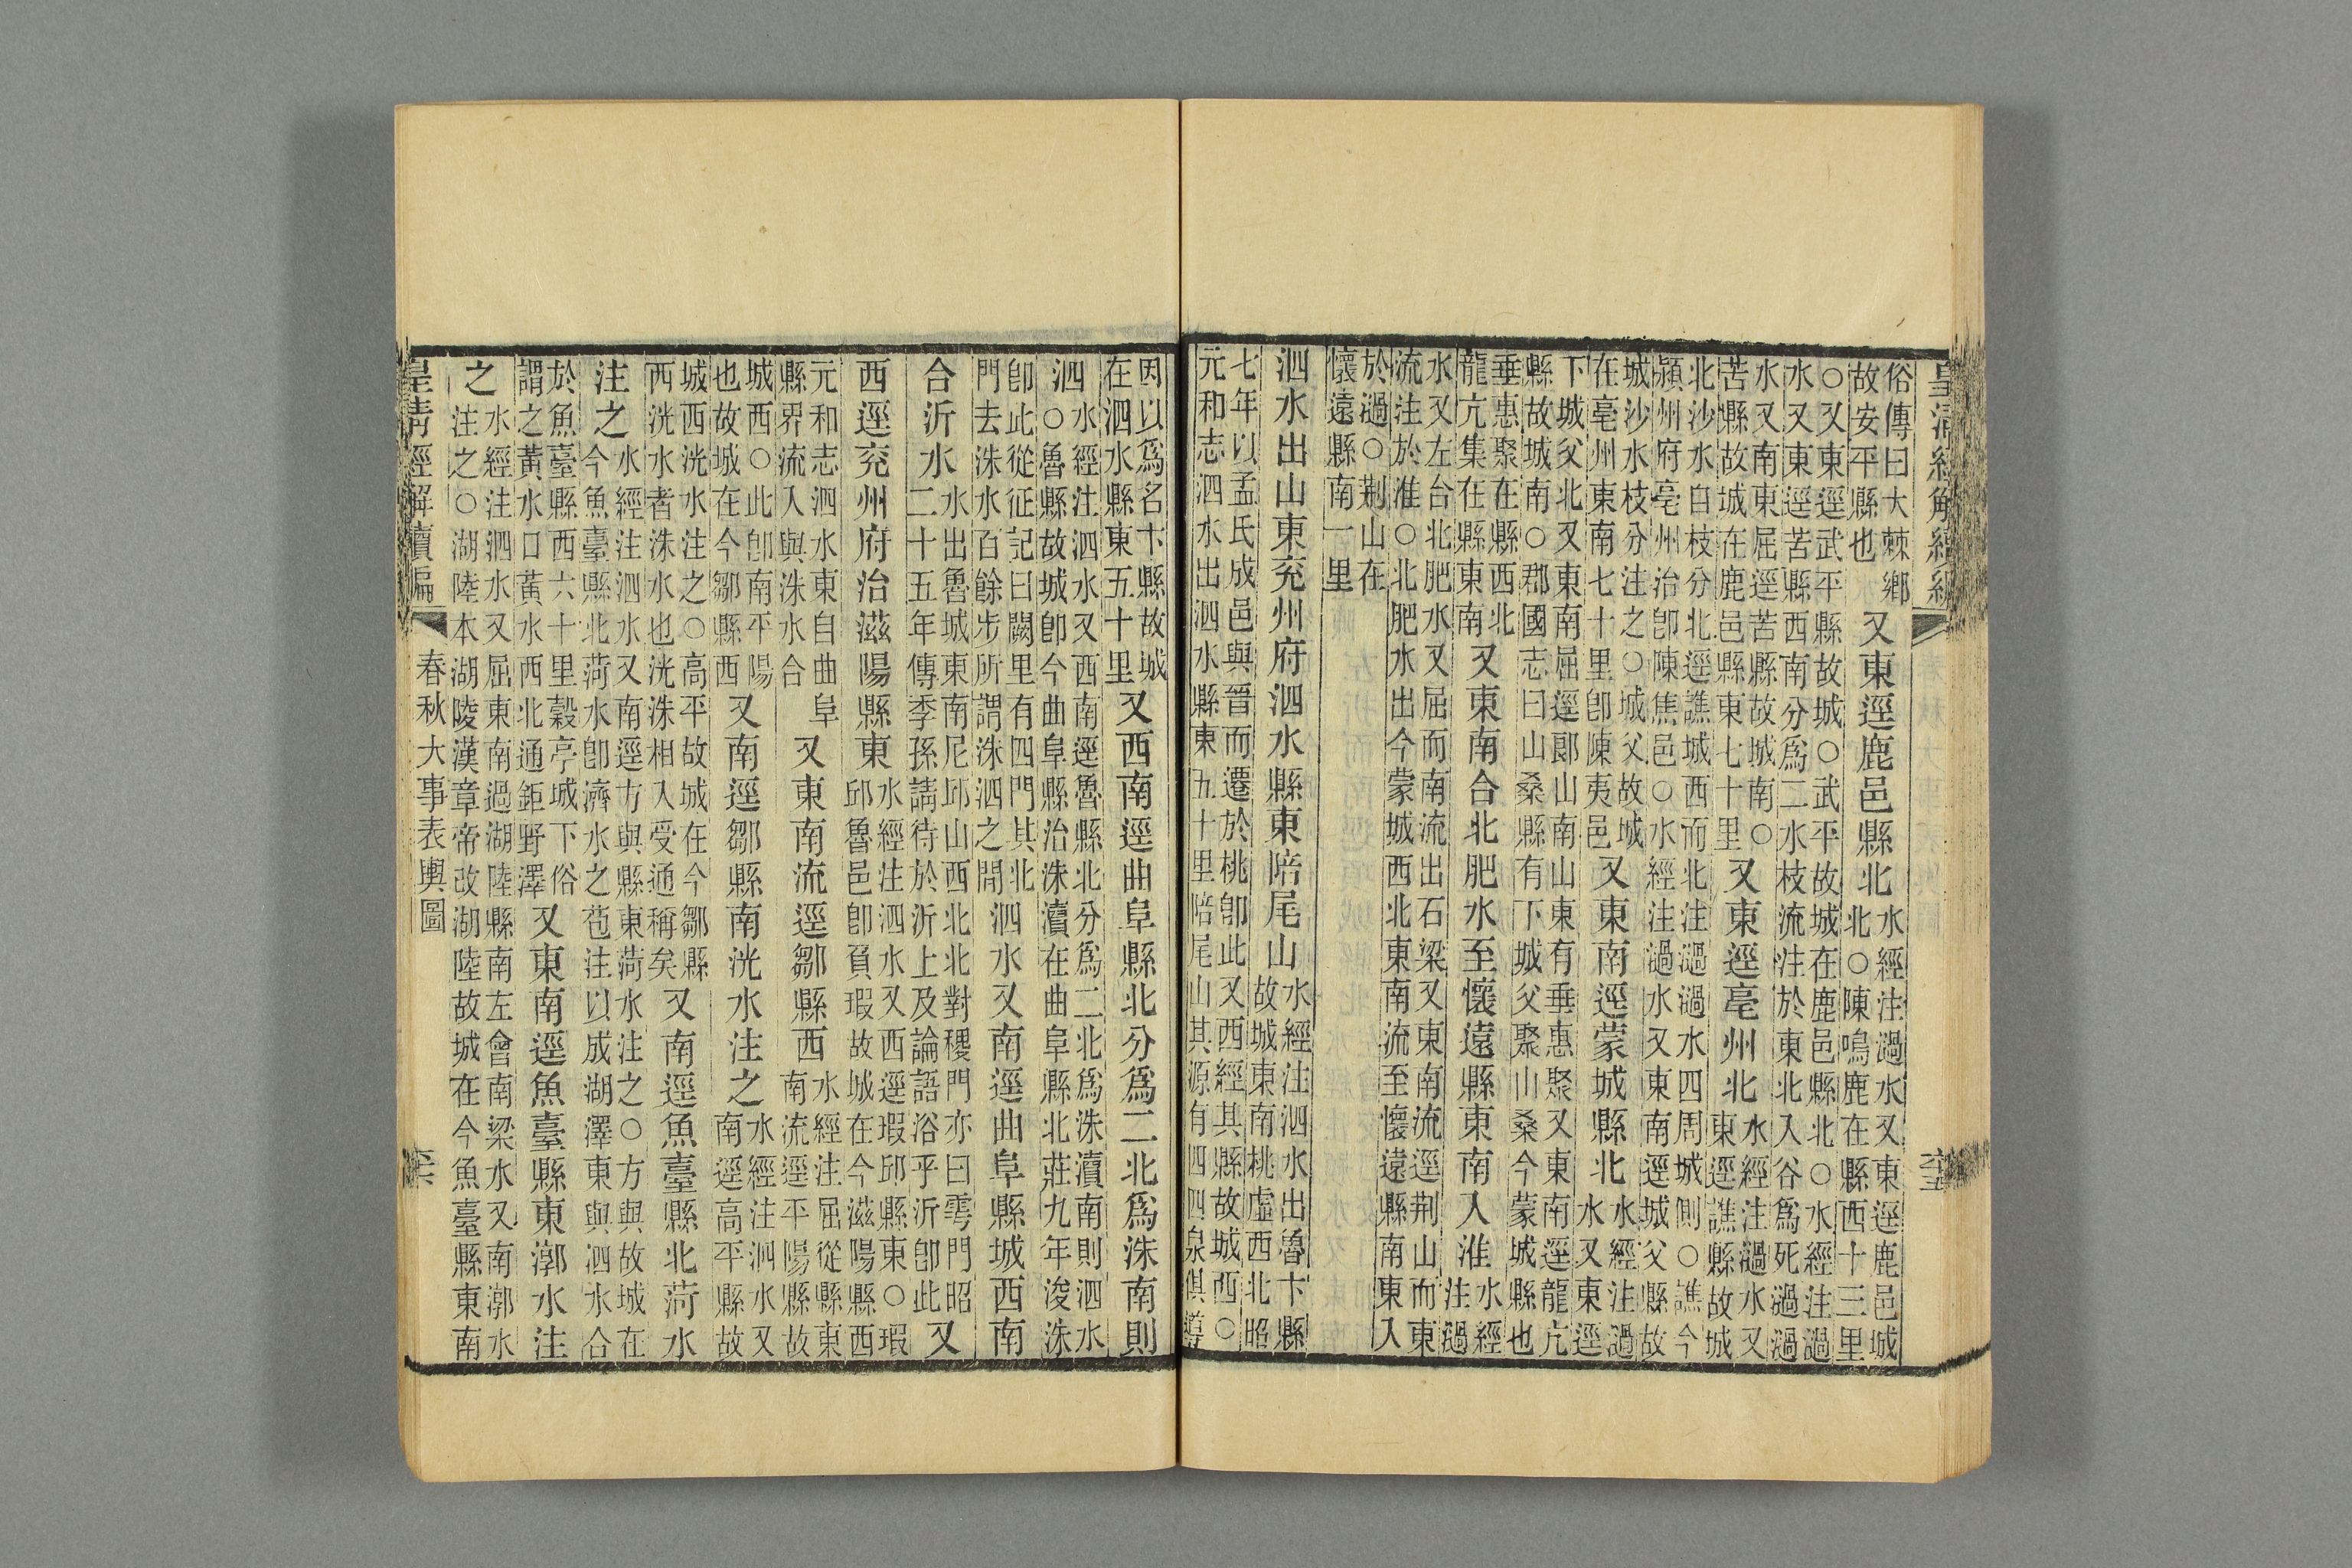 皇清經解續編
六五
俗傳曰大棘鄉
故安平縣也
又東逕鹿邑縣北
水經注濄水又東逕鹿邑城
北○陳鳴鹿在縣西十三里
○又東逕武平縣故城○武平故城在鹿邑縣北○水經注濄
水又東逕苦縣西南分爲二水枝流注於東北入谷爲死濄濄
水又南東屈逕苦縣故城南○
苦縣故城在鹿邑縣東七十里
又東逕亳州北
水經注濄水又
東逕譙縣故城
北沙水自枝分北逕譙城西而北注濄濄水四周城側○譙今
潁州府亳州治卽陳焦邑○水經注濄水又東南逕城父縣故
城沙水枝分注之○城父故城
在亳州東南七十里卽陳夷邑
又東南逕蒙城縣北
水經注濄
水又東逕
下城父北又東南屈逕郎山南山東有垂惠聚又東南逕龍亢
縣故城南○郡國志曰山桑縣有下城父聚山桑今蒙城縣也
垂惠聚在縣西北
龍亢集在縣東南
又東南合北肥水至懷遠縣東南入淮
水經
注濄
水又左合北肥水又屈而南流出石梁又東南流逕荆山而東
流注於淮○北肥水出今蒙城西北東南流至懷遠縣南東入
於濄○荆山在
懷遠縣南一里
泗水出山東兗州府泗水縣東陪尾山
水經注泗水出魯卞縣
故城東南桃虛西北昭
七年以孟氏成邑與晉而遷於桃卽此又西經其縣故城西○
元和志泗水出泗水縣東五十里陪尾山其源有四四泉俱導
因以爲名卞縣故城
在泗水縣東五十里
又西南逕曲阜縣北分爲二北爲洙南則
泗
水經注泗水又西南逕魯縣北分爲二北爲洙瀆南則泗水
○魯縣故城卽今曲阜縣治洙瀆在曲阜縣北莊九年浚洙
卽此從征記曰闕里有四門其北
門去洙水百餘步所謂洙泗之閒
泗水又南逕曲阜縣城西南
合沂水
水出魯城東南尼邱山西北北對稷門亦曰雩門昭
二十五年傳季孫請待於沂上及論語浴乎沂卽此
又
西逕兗州府治滋陽縣東
水經注泗水又西逕瑕邱縣東○瑕
邱魯邑卽負瑕故城在今滋陽縣西
元和志泗水東自曲阜
縣界流入與洙水合
又東南流逕鄒縣西
水經注屈從縣東
南流逕平陽縣故
城西○此卽南平陽
也故城在今鄒縣西
又南逕鄒縣南洸水注之
水經注泗水又
南逕高平縣故
城西洸水注之○高平故城在今鄒縣
西洸水者洙水也洸洙相入受通稱矣
又南逕魚臺縣北菏水
注之
水經注泗水又南逕方與縣東菏水注之○方與故城在
今魚臺縣北菏水卽濟水之苞注以成湖澤東與泗水合
於魚臺縣西六十里穀亭城下俗
謂之黃水口黃水西北通鉅野澤
又東南逕魚臺縣東漷水注
之
水經注泗水又屈東南過湖陸縣南左會南梁水又南漷水
注之○湖陸本湖陵漢章帝改湖陸故城在今魚臺縣東南
皇清經解續編
春秋大事表輿圖
六六